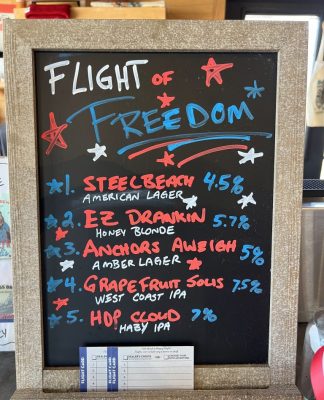 FLIGHT OF
FREEDOM
1. STEELBEACH 4.5%
AMERICAN LAGER
2. EZ DRANKIN 5.7%
HONEY BLONDE
3. ANCHORS AWEIGH 5%
AMBER LAGER
4. GRAPEFRUIT SOLIS 7.5%
WEST COAST IPA
5. HOP CLOUD 7%
HAZY IPA
FLIGHT CARD
FLIGHT CARD